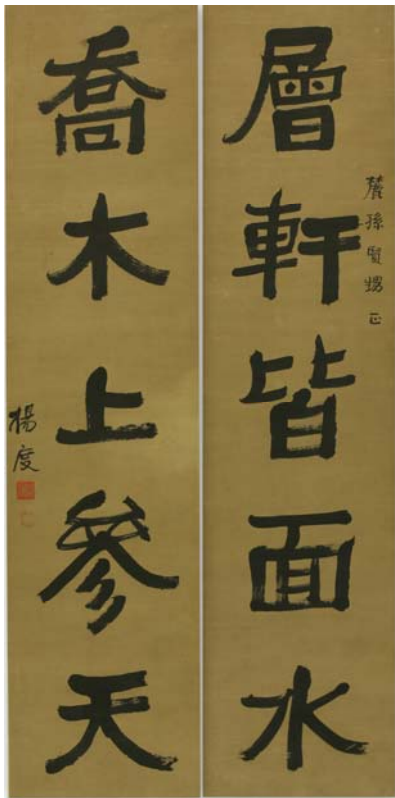 層軒皆面水
麓孫賢甥正
喬木上參天
楊度